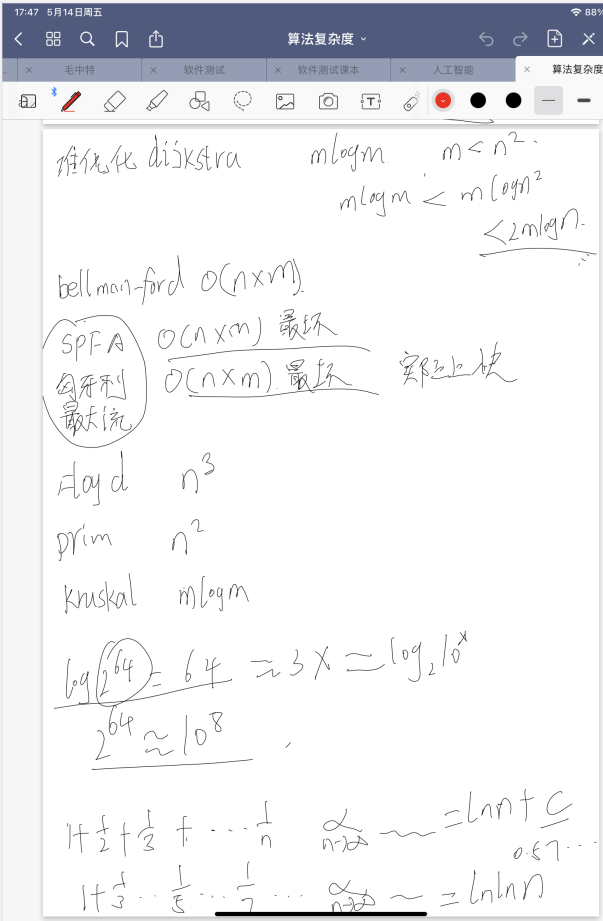 17:47 5月14日周五 88%
算法复杂度
毛中特 软件测试 软件测试课本 人工智能 算法复杂度
堆优化 dijkstra mlogm m < n².
mlogm < mlogn²
<2mlogn.
bellman-ford O(n×m)
SPFA O(n×m) 最坏
匈牙利 O(n×m). 最坏 实际上快
最大流
Floyd n³
prim n²
kruskal mlogm
log(2⁶⁴) = 64 ≈ 3x = log₂10ˣ
2⁶⁴ ≈ 10⁸
1+1/2+1/3 + ... 1/n n→∞ = lnn + C
0.57...
1+1/3 .. 1/5 ... 1/7 ... n→∞ ~ = lnlnn